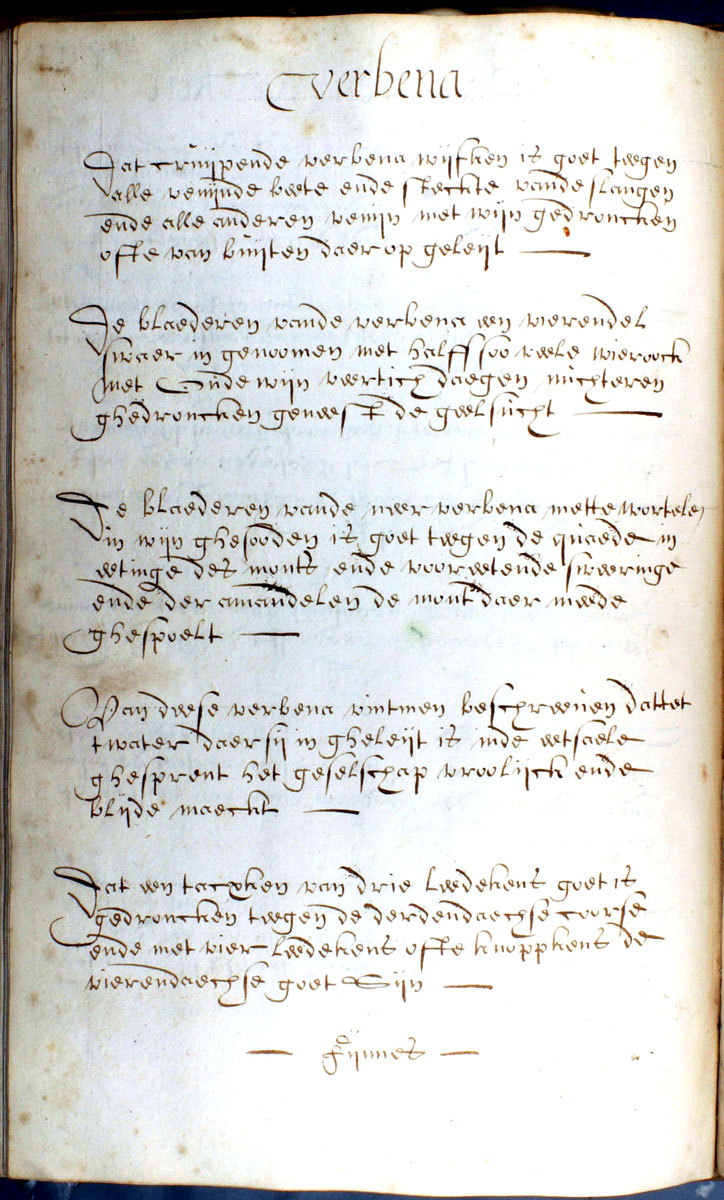 verbena
Dat cruijpende verbena wijfken is goet teegen
alle venijnde beete ende steeckte vande slangen
ende alle anderen venijn met wijn gedroncken
ofte van buijten daer op geleijt
De blaederen vande verbena een vierendel
swaer in genoomen met halff soo veele wieroock
met Oude wijn veertich daegen nuchteren
ghedroncken geneest de geelsucht
De blaederen vande neer verbena mette wortelen
in wijn ghesooden is goet teegen de quaede in
eetinge des monts ende voorreetende sweeringe
ende der amandelen de mont daer meede
ghespoelt
Van deese verbena vintmen beschreeuen dattet
twater daer sij in gheleijt is inde eetsaele
ghesprent het geselschap vroolijck ende
blijde maeckt
Dat een tacxken van drie leedekens goet is
gedroncken teegen de derdendaechse coorse
ende met vier leedekens ofte knoppkens de
vierendaechse goet Sijn
Fijnnes